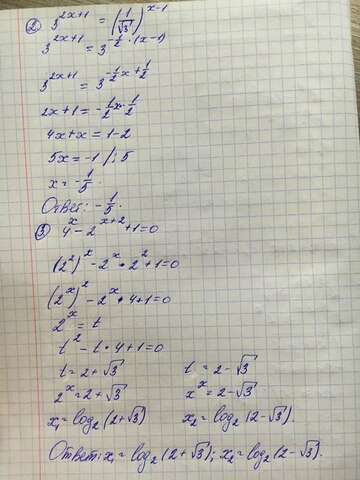 ② 3^(2x+1) = (1/√3)^(x-1)
3^(2x+1) = 3^(-1/2·(x-1))
3^(2x+1) = 3^(-1/2x+1/2)
2x+1 = -1/2x·1/2
4x+x = 1-2
5x = -1 /:5
x = -1/5.
Ответ: -1/5.
③ 4^x - 2^(x+2) + 1 = 0
(2^2)^x - 2^x • 2^2 + 1 = 0
(2^x)^2 - 2^x • 4 + 1 = 0
2^x = t
t^2 - t • 4 + 1 = 0
t = 2+√3 t = 2-√3
2^x = 2+√3 x^x = 2-√3
x₁ = log₂(2+√3) x₂ = log₂(2-√3).
Ответ: x₁ = log₂(2+√3); x₂ = log₂(2-√3).